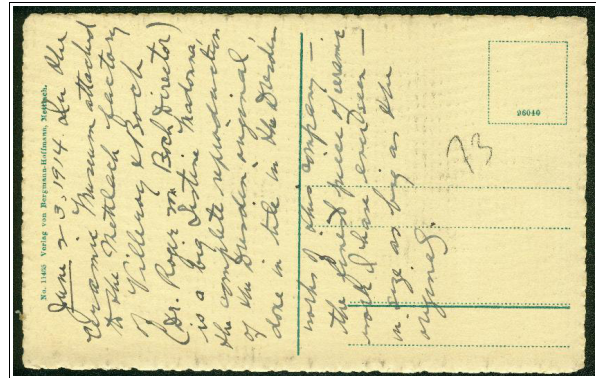 No. 11405 Verlag von Bergmann-Hoffmann, Mettlach.
June 23, 1914. In the
Ceramic Museum attached
to the Mettlach factory
of Villeroy & Boch
(Dr. Roger von Boch Director)
is a big Sistine Madonna,
the complete reproduction
of the Dresden original,
done in tile in the Dresden
works of this company —
the finest piece of ceramic
work I have ever seen —
in size as big as the
original.
26040
73